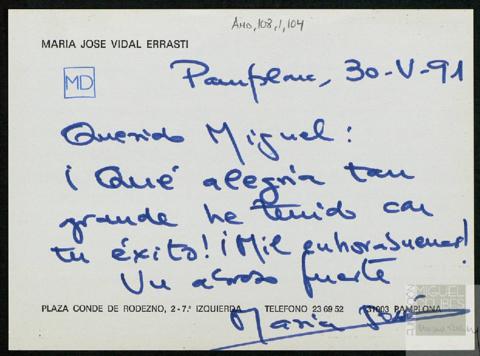 AMD,108,1,104
MARIA JOSE VIDAL ERRASTI
MD
Pamplona, 30-V-91
Querido Miguel:
¡Qué alegría tan
grande he tenido con
tu éxito! ¡Mil enhorabuenas!
Un abrazo fuerte
PLAZA CONDE DE RODEZNO, 2-7.ª IZQUIERDA TELEFONO 23 69 52 31003 PAMPLONA
Maria José
MIGUEL